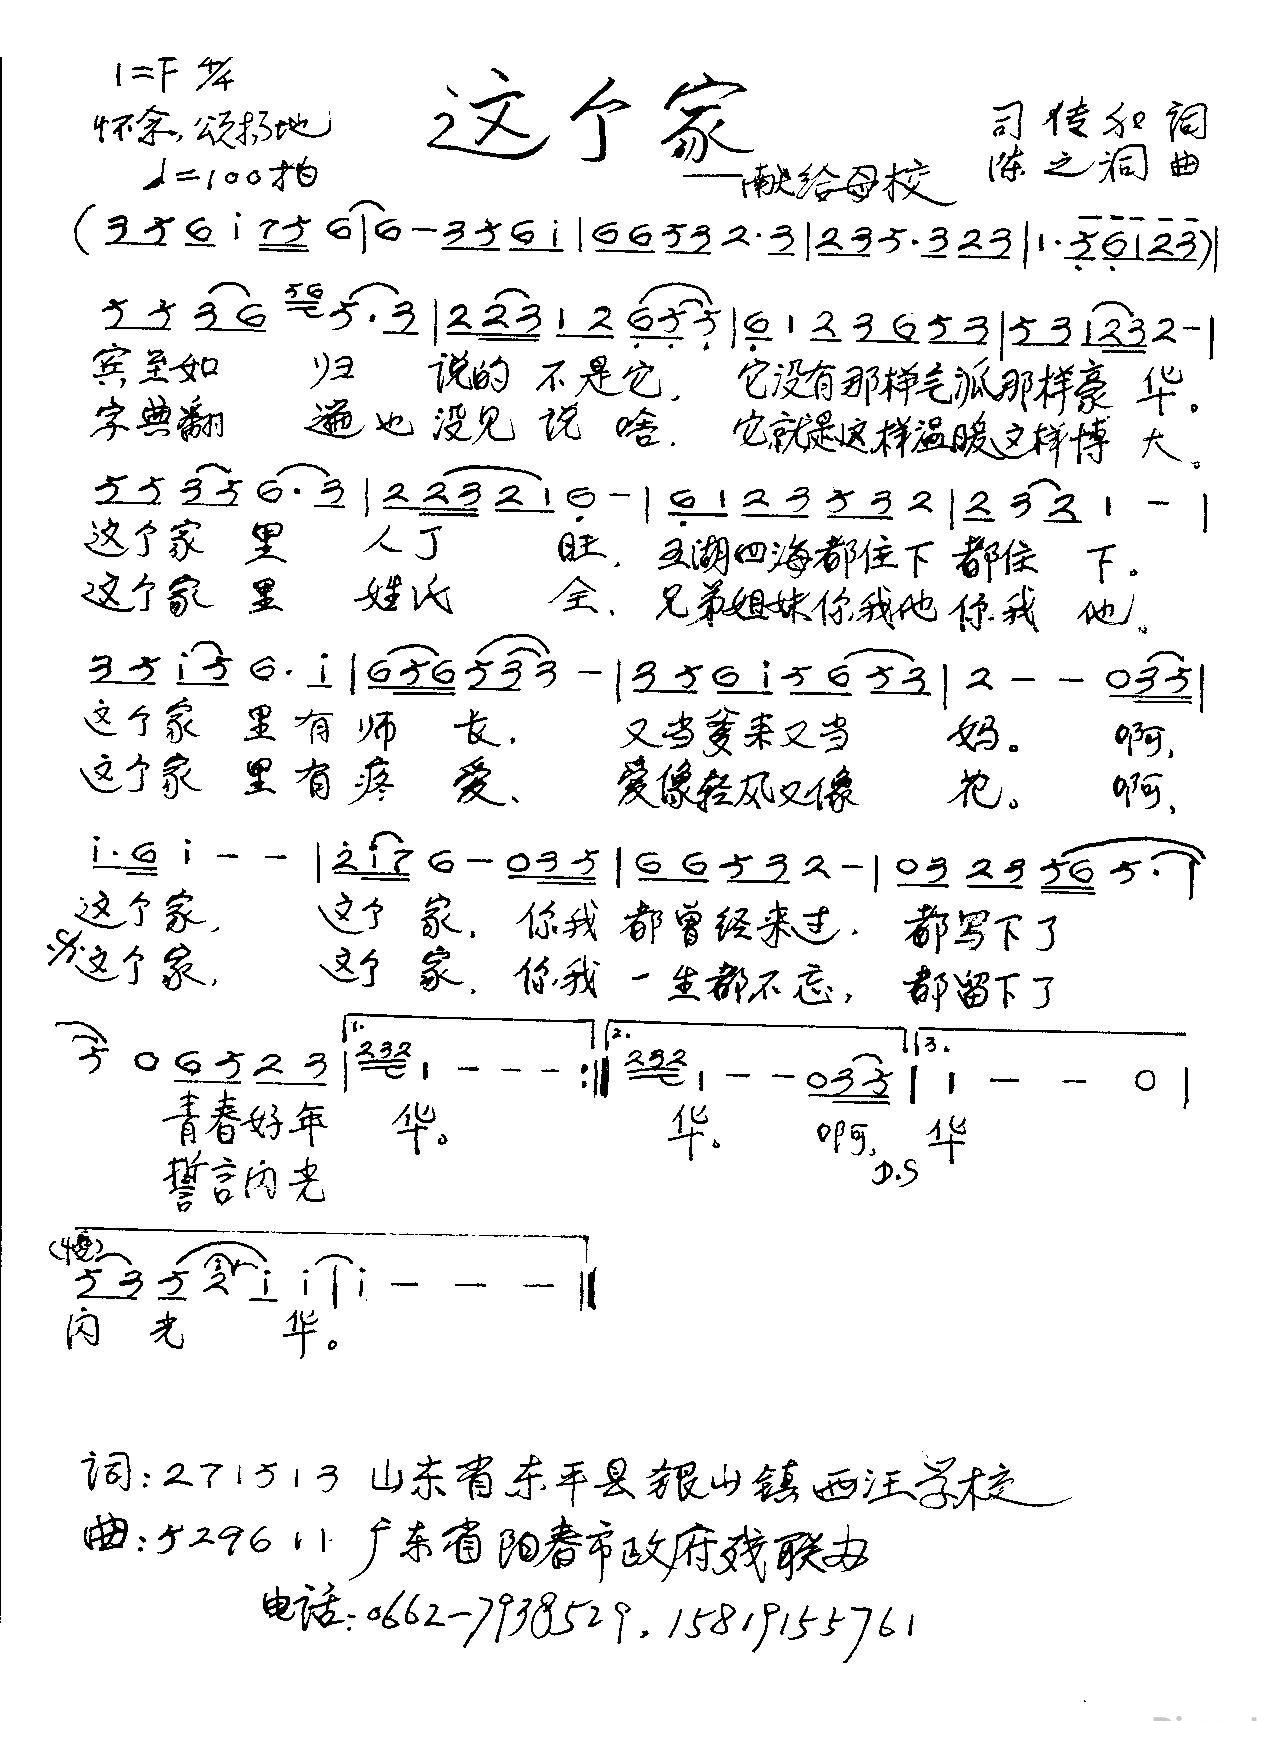 1=F 4/4
这个家
怀念, 颂扬地
司传和 词
♩=100拍
——献给母校
陈之洞 曲
(3 5 6 i 7 5 6 | 6 - 3 5 6 i | 6 6 5 3 2·3 | 2 3 5·3 2 3 | 1·5 6 1 2 3)|
5 5 3 6 56 5·3 | 2 2 3 1 2 6 5 5 | 6 1 2 3 6 5 3 | 5 3 1 2 3 2 - |
宾至如 归 说的 不是它, 它没有那样 那样豪 华。
字典翻 遍也没见 说 啥. 它就是这样温暖这样博 大。
5 5 3 5 6·3 | 2 2 3 2 1 6 - | 6 1 2 3 5 3 2 | 2 3 2 1 - |
这个家 里 人丁 旺, 五湖四海都住下 都住 下。
这个家 里 姓氏 全, 兄弟姐妹你我他 你我 他。
3 5 i 5 6·i | 6 5 6 5 3 3 - | 3 5 6 i 5 6 5 3 | 2 - - 0 3 5 |
这个家 里有师 长, 又当爹来又当 妈。 啊,
这个家 里有疼 爱、 爱像轻风又像 花。 啊,
i·6 i - - | 2 i 7 6 - 0 3 5 | 6 6 5 3 2 - | 0 3 2 3 5 6 5· |
这个家, 这个 家, 你我 都曾经来过. 都写下了
这个家, 这个 家, 你我 一生都不忘, 都留下了
5 0 6 5 2 3 | 1. 232 1 - - - :‖ 2. 232 1 - - 0 3 5 | 3. 1 - - 0 |
青春好年 华。 华。 啊, 华
誓言闪光 D.S
(慢)
5 3 5 2 i i | i - - - ‖
闪 光 华。
词: 271513 山东省东平县银山镇西汪学校
曲: 529611 广东省阳春市政府残联办
电话: 0662-7938529. 15819155761